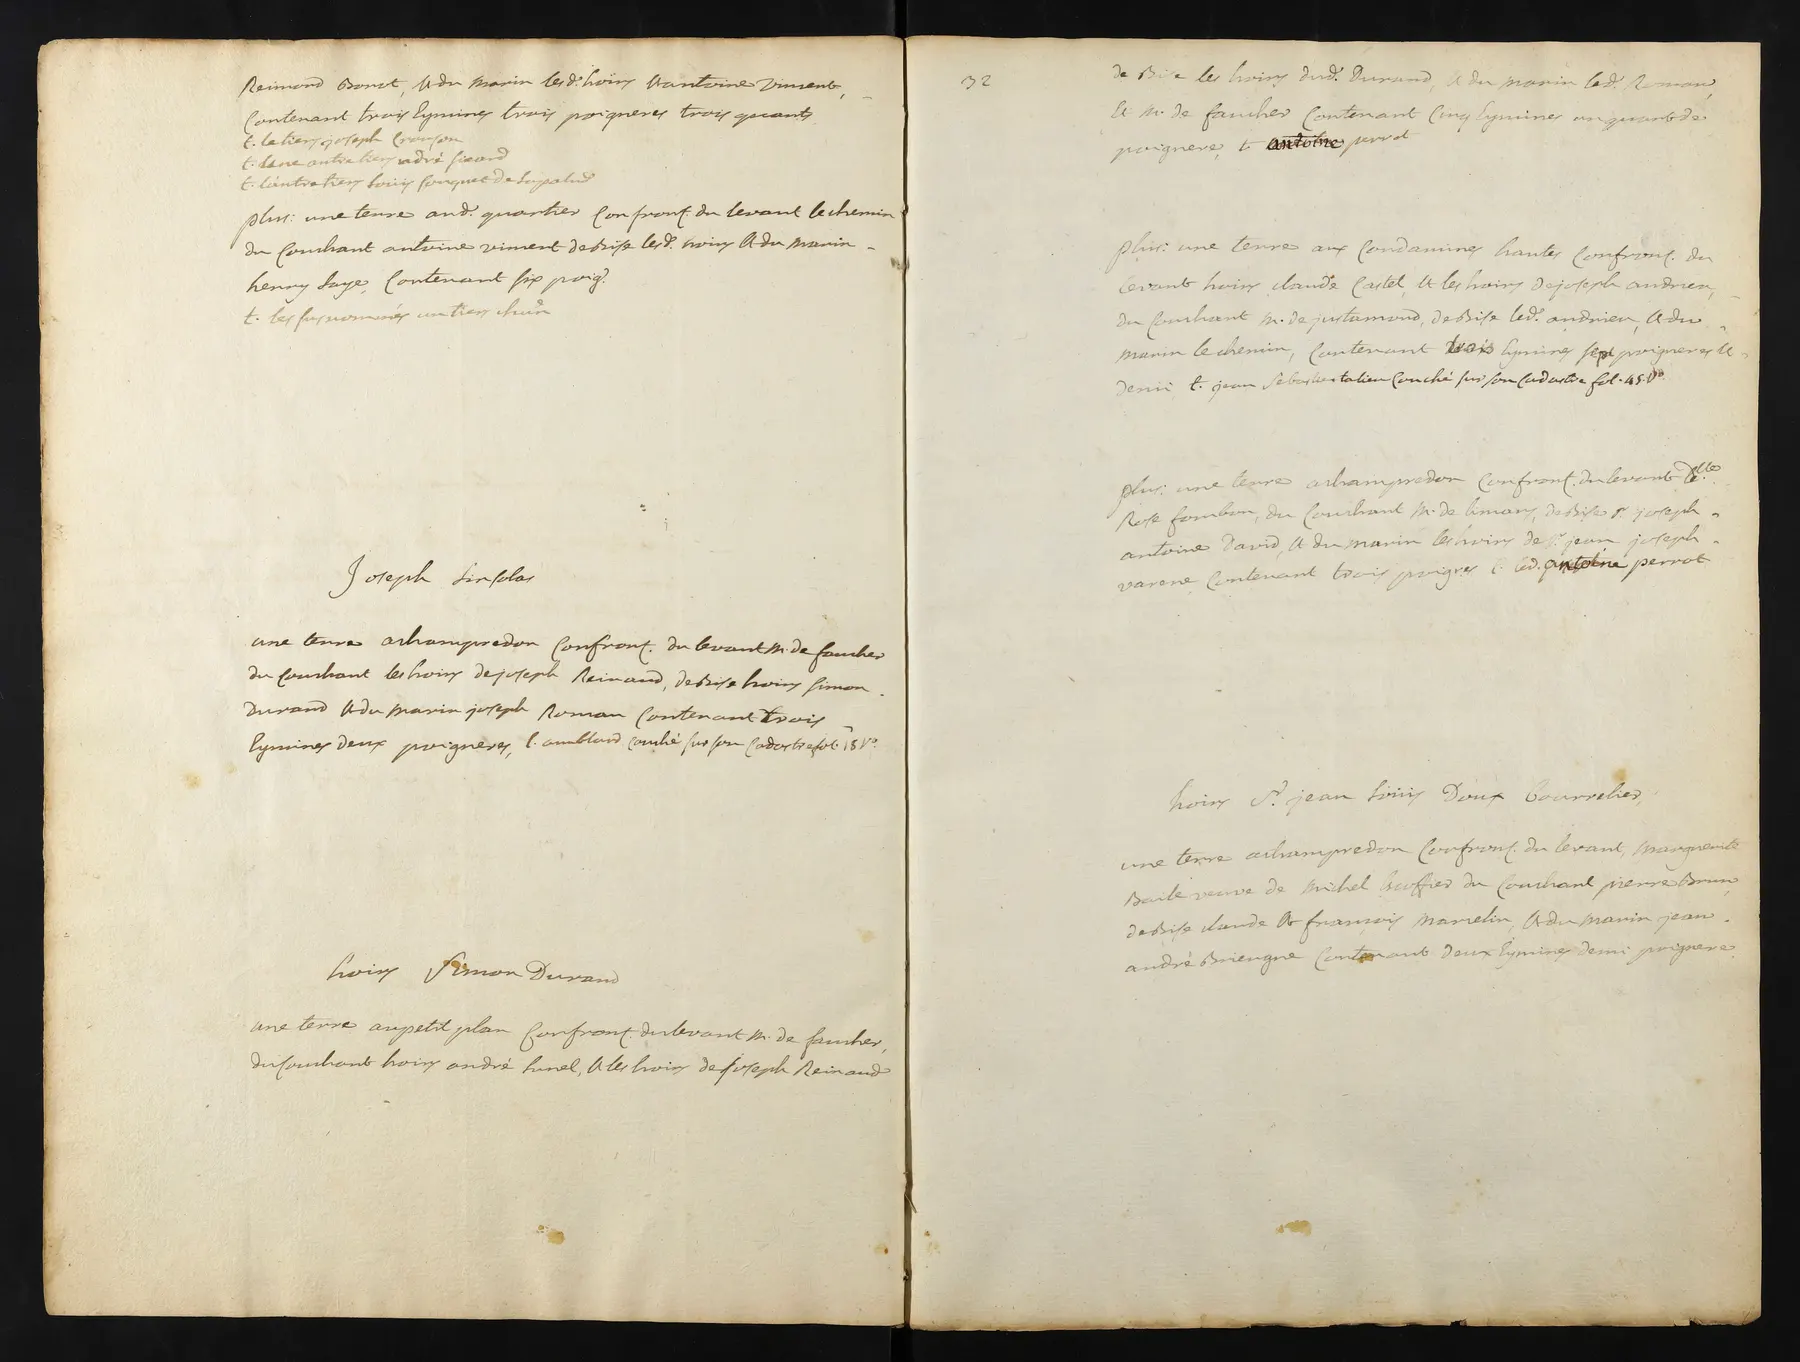 Reimond Bonot, & du marin lesd. hoirs & antoine viment,
Contenant trois Eymines trois poigneres trois quarts
t. le tiers joseph Crouson
t. lune autre tiers adré sicard
t. lautre tiers Louis fouquet de Lapalud
plus: une terre aud. quartier Confront. du levant le chemin
du Couchant antoine viment de Bise lesd. hoirs & du marin
henry Saye, Contenant six poig.
t. les susnommés un tiers chún
Joseph Sinsolas
une terre achampredon Confront. du levant m. de faucher
du Couchant les hoirs de joseph Reinaud, de Bise hoirs simon
Durand & du marin joseph Roman Contenant trois
Eymines deux poigneres, t. amblard couché sur son Cadastre fol. 18 vo.
hoirs Simon Durand
une terre au petit plan Confront. du levant m. de faucher,
du Couchant hoirs andré Lunel, & les hoirs de joseph Reinaud
32
de Bise les hoirs dud. Durand, & du marin led. Roman,
Et m. de faucher Contenant Cinq Eymines un quart de
poignere, t. antoine perrot
plus: une terre aux Condamines hautes Confront. du
levant hoirs claude Castel, & les hoirs de joseph andrieu,
du Couchant m. de justamond, de Bise led. andrieu, & du
marin le chemin, Contenant trois Eymines sept poigneres &
demi t. jean Sebastien talieu Couché sur son Cadastre fol. 45. vo.
plus: une terre achampredon Confront. du levant Dlle.
Rose fombon, du Couchant m. de limans, de Bise sr. joseph
antoine David, & du marin les hoirs de sr. jean joseph
varene Contenant trois poigres t. led. antoine perrot
hoirs Sr. jean Louis Doux Bourrelier
une terre achampredon Confront. du levant, marguerite
Baile veuve de michel Escoffier du Couchant pierre Brun,
de Bise claude & françois marcelin, & du marin jean
andré Briengne Contenant deux Eymines demi poignere.